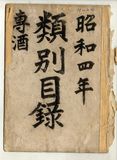 昭和四年
類別目録
専酒